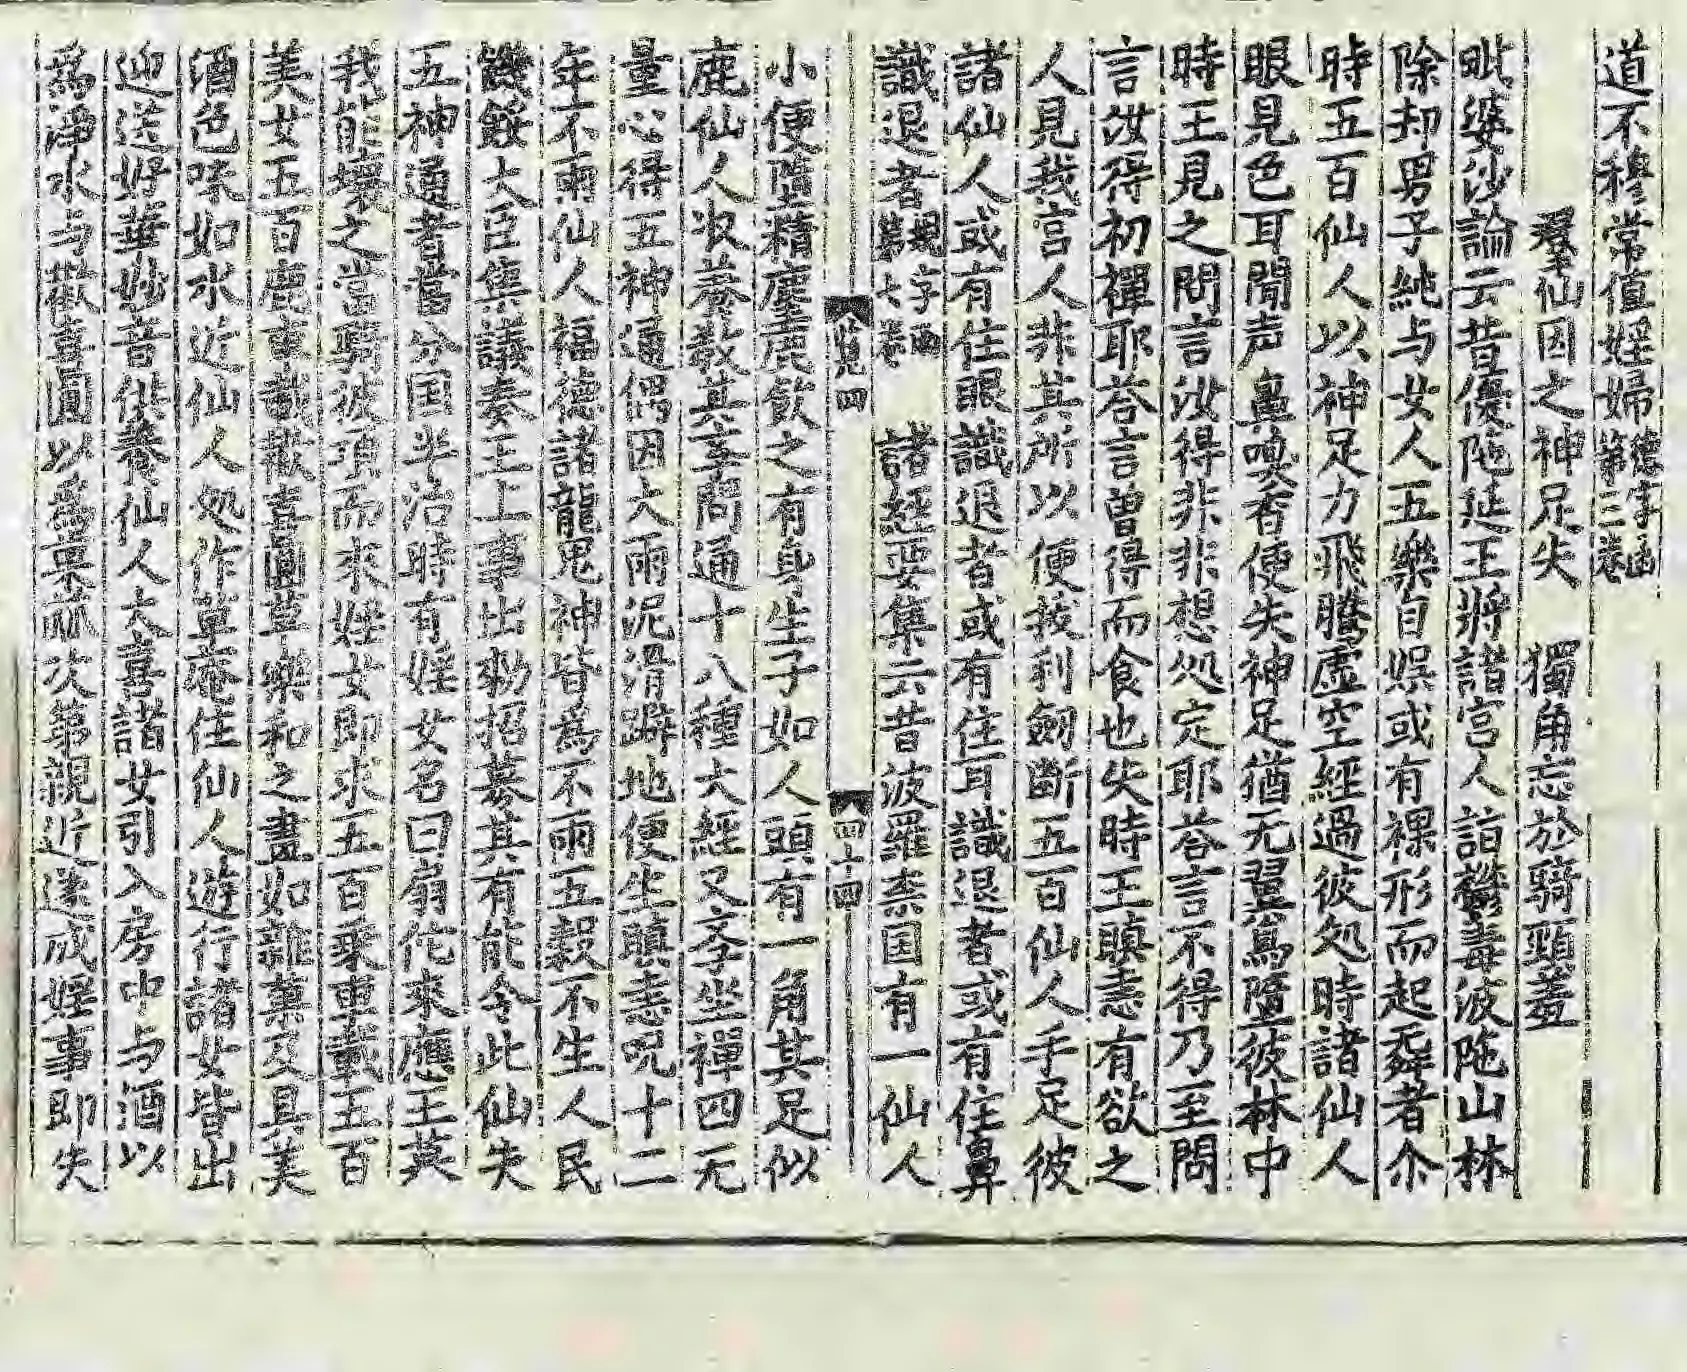 道不穆常值婬婦德字函第三卷
羣仙因之神足失　獨角忘於騎頸羞
毗婆沙論云昔優陁延王將諸宮人詣欝毒波陁山林
除却男子純与女人五樂自娛或有裸形而起舞者尒
時五百仙人以神足力飛騰虛空經過彼処時諸仙人
眼見色耳聞声鼻嗅香便失神足猶无翼鳥墮彼林中
時王見之問言汝得非非想処定耶荅言不得乃至問
言汝得初禪耶荅言曽得而食也失時王瞋恚有欲之
人見我宮人非其所以便我利劒断五百仙人手足彼
諸仙人或有住眼識退者或有住耳識退者或有住鼻
識退者　諸經要集云昔波羅柰国有一仙人
覽四　四十四
小便墮精麀鹿飲之有身生子如人頭有一角其足似
鹿仙人收養教其孝問通十八種大經又孝坐禪四无
量心得五神通偶因大雨泥滑躃地便生瞋恚呪十二
年不雨仙人福德諸龍鬼神皆爲不雨五穀不生人民
饑餒大臣集議奏王上事出勑招募其有能令此仙失
五神通者當分国半治時有婬女名曰扇佗來應王募
我能壞之當騎彼項而來婬女即求五百乗車載五百
美女五百鹿車載歡喜圓草藥和之畫如雜菓及且美
酒色味如水近仙人処作草菴住仙人遊行諸女皆出
迎送好華妙香供養仙人大喜諸女引入房中与酒以
爲淨水与歡喜圓以爲菓蓏次第親近遂成婬事即失